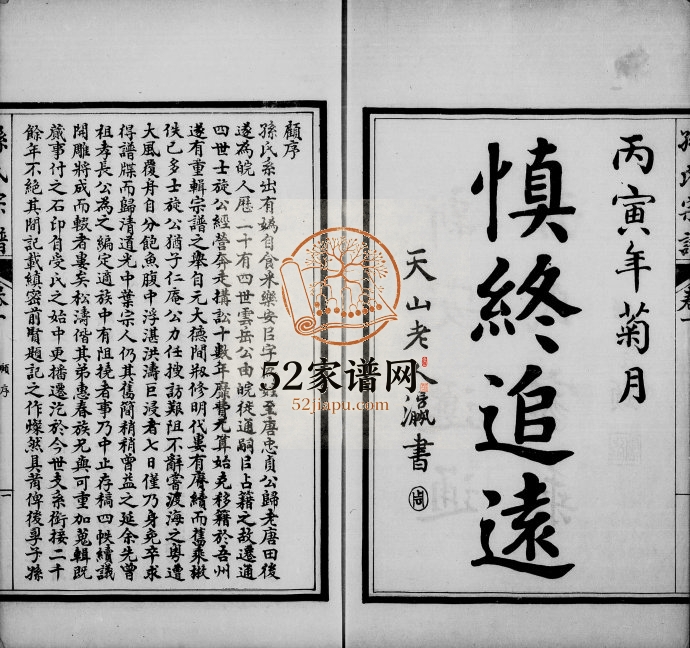 丙寅年菊月
慎終追遠
天山老人瀛書
孫氏宗譜
卷一
顧序
孫氏系出有媯自食采樂安
至唐忠貞公歸老唐田後
遂為皖人歷二十有四世雲岳公由皖徙通嗣㠯占籍之故遷通
四世士旋公經營奔走搆訟十數年靡費無算始克移籍於吾州
遂有重輯宗譜之舉自元大德間叙修明代婁有賡續而舊乘
佚已多士旋公猶子仁庵公力任搜訪艱阻不辭嘗渡海之粵遭
大風覆舟自分飽魚腹中浮湛洪濤巨浸者七日僅乃身免卒求
得譜牒而歸清道光中葉宗人仍其舊簡稍稍曾益之延余先曾
祖孝長公為之編定適族中有阻撓者事乃中止存稿四帙續議
開雕將成而輟者婁矣松濤偕其弟惠春族兄與可重加蒐輯既
蕆事付之石印自受氏之始中更播遷迄於今世支系銜接二千
餘年不絕其間記載縝密前賢題記之作燦然具備俾後孠子孫
孫氏宗譜
卷一
顧序
一
52家谱网
52jiapu.com